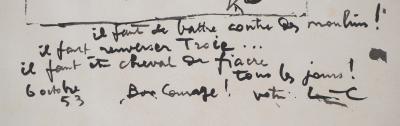 il faut se battre contre des moulins !
il faut renverser Troie ...
il faut être cheval de fiacre
tous les jours !
6 octobre
53
Bon Courage ! votre